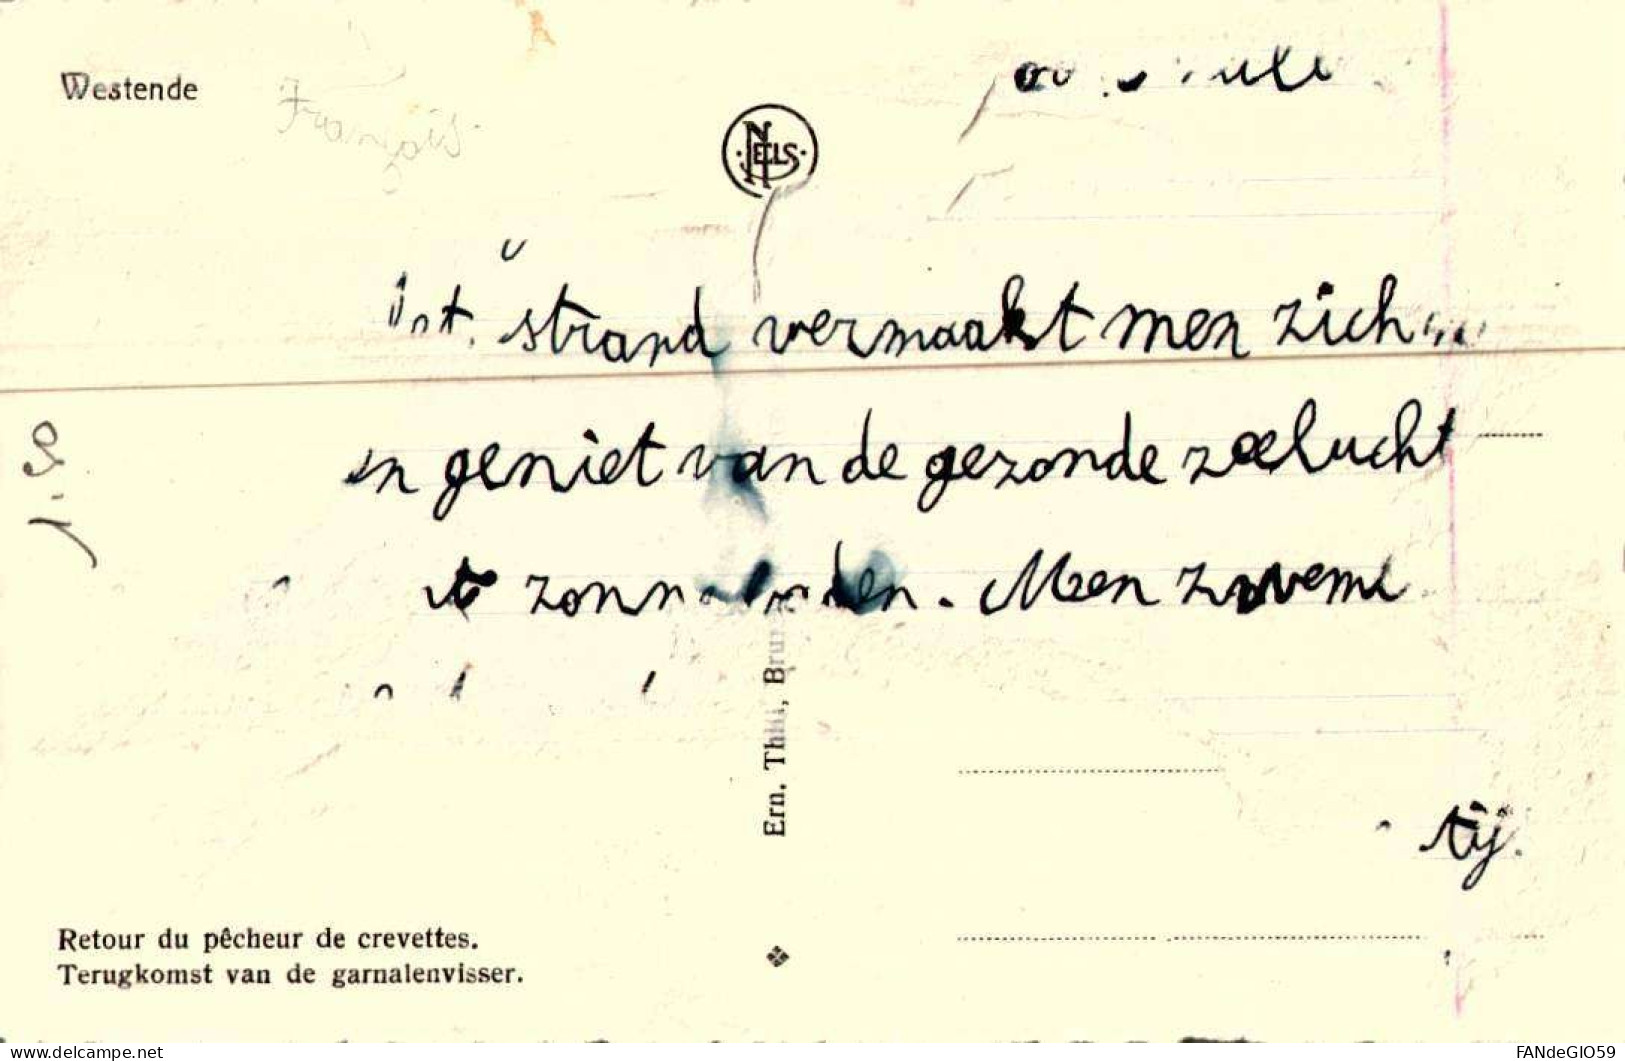 Westende
François
NELS
strand vermaakt men zich
en geniet van de gezonde zeelucht
Men zwemt
tij.
1.50
Ern. Thill, Bru
Retour du pêcheur de crevettes.
Terugkomst van de garnalenvisser.
delcampe.net
FANdeGIO59